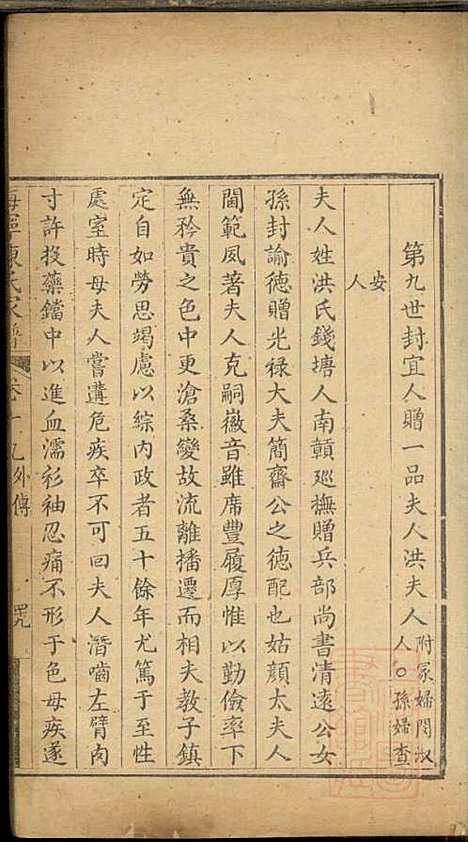 第九世封宜人贈一品夫人洪夫人附冢婦閔淑人○孫婦查
安人
夫人姓洪氏錢塘人南贛巡撫贈兵部尚書清遠公女
孫封諭德贈光祿大夫簡齋公之德配也姑顏太夫人
閫範夙著夫人克嗣徽音雖席豐履厚惟以勤儉率下
無矜貴之色中更滄桑變故流離播遷而相夫教子鎮
定自如勞思竭慮以綜內政者五十餘年尤篤于至性
處室時母夫人嘗遘危疾卒不可回夫人潛嚙左臂肉
寸許投藥鐺中以進血濡衫袖忍痛不形于色母疾遂
海寧陳氏家譜 卷十九外傳 四九